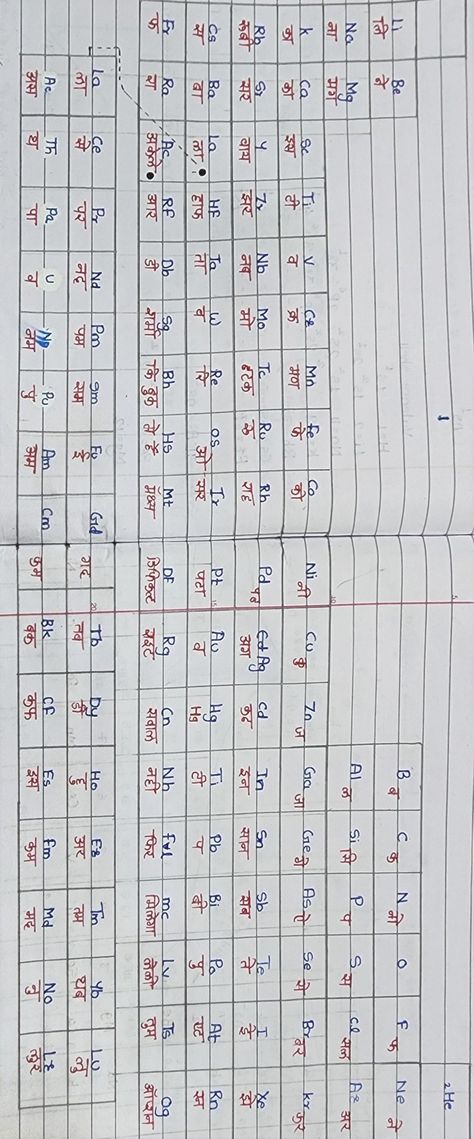 1
2He
Li Be B C N O F Ne
लि बे ब क नो फ ने
Na Mg Al Si P S Cl Ar
ना मग ल सि प स कल अर
K Ca Sc Ti V Cr Mn Fe Co Ni Cu Zn Ga Ge As Se Br Kr
का का इस ती व क्र मन फे को नी कु ज गा गे ऐ से बर कर
Rb Sr Y Zr Nb Mo Tc Ru Rh Pd Ag Cd In Sn Sb Te I Xe
रूबी सर वाय झर नब मो टक रु राह पद अग कद इन सान सब ते ई झे
Cs Ba La HF Ta W Re Os Ir Pt Au Hg Ti Pb Bi Po At Rn
स बा ला हाफ ता व रि ओ सर पटा व Hg ती प बी पु एट रन
Fr Ra Ac RF Db Sg Bh Hs Mt DF Rg Cn Nh Fl mc Lv Ts Og
फ रा अकेले आर डी शर्मा कि बुक ले है मैथ्स डिफिकल्ट राइट सवाल नही फिर मिलेगा लेलो तुम ऑप्शन
La Ce Pr Nd Pm Sm Eu Gd Tb Dy Ho Er Tm Yb Lu
ला से पर नद पम सम ई गद तब डी हु अर तम यब लु
Ac Th Pa U Np Pu Am Cm Bk CF Es Fm Md No Lr
अस थ पा व नम पु अम कम बक कफ इस फम मद नु लुर